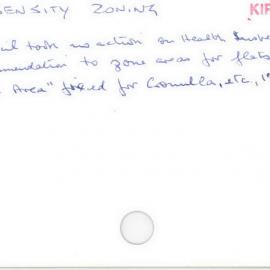 ENSITY ZONING KIR
cil took no action on Health Inspe
mmendation to zone areas for flats
Area" fixed for Cronulla, etc, 1